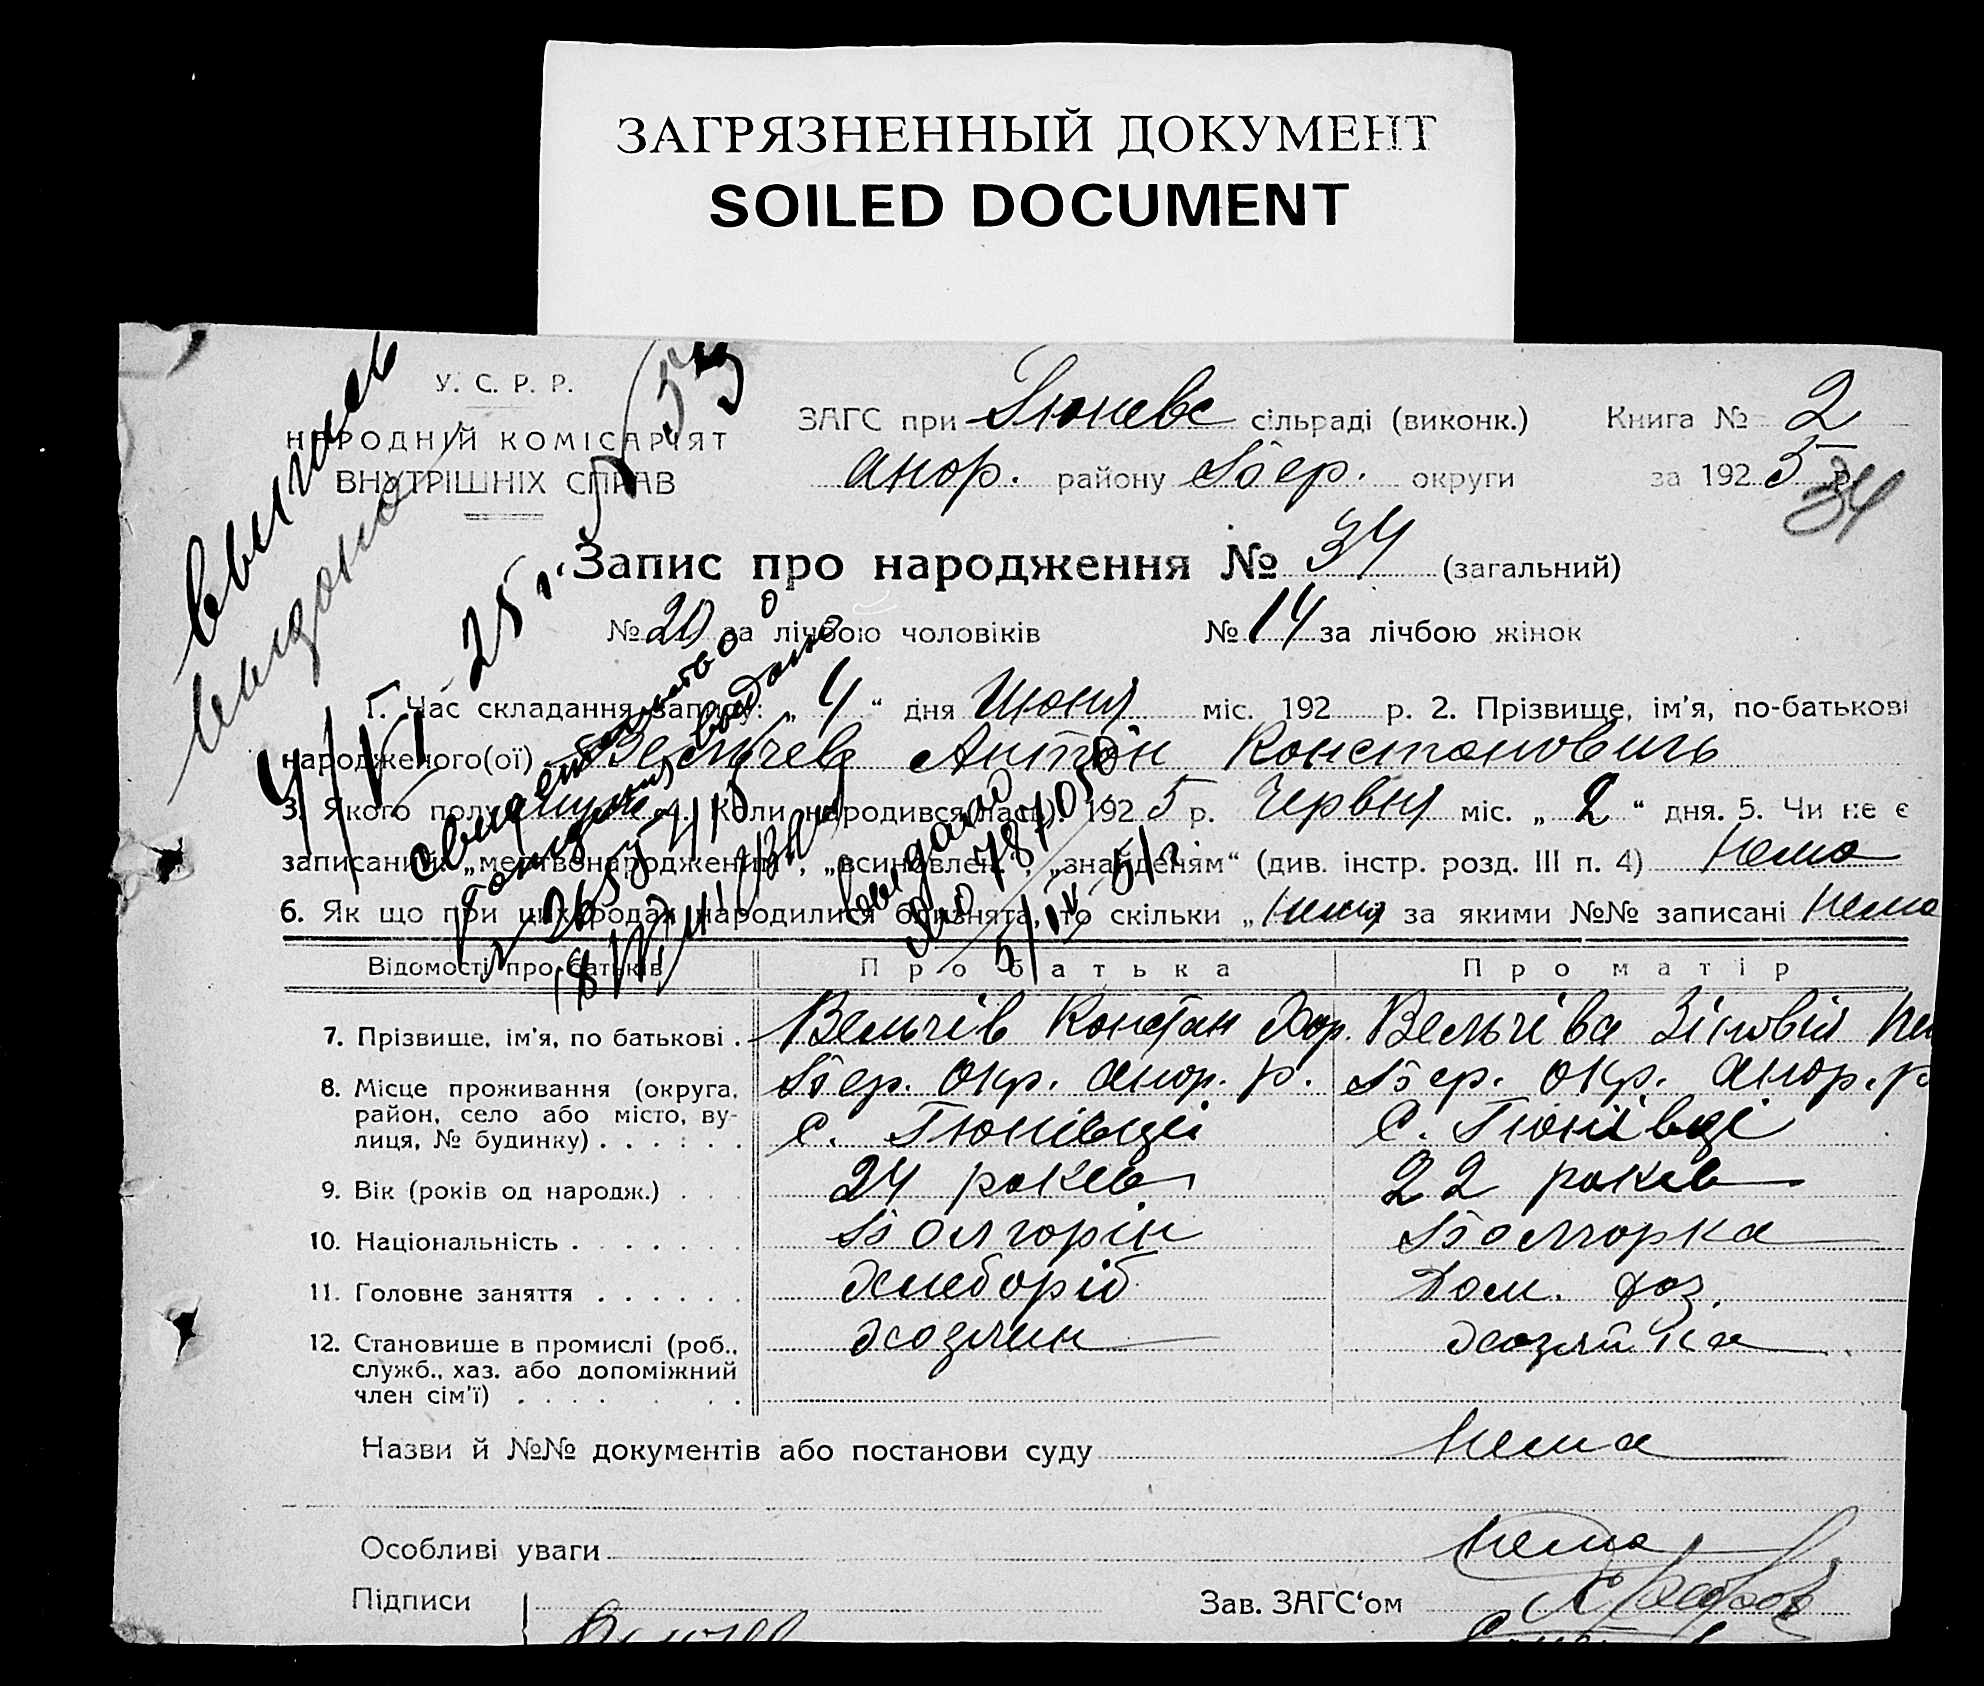 ЗАГРЯЗНЕННЫЙ ДОКУМЕНТ
SOILED DOCUMENT
У. С. Р. Р.
НАРОДНІЙ КОМІСАРІЯТ
ВНУТРІШНІХ СПРАВ
ЗАГС при Гюневс сільраді (виконк.) Книга № 2
анор. району Бер. округи за 1925 р.
34
Запис про народження № 34 (загальний)
№ 20 за лічбою чоловіків № 14 за лічбою жінок
1. Час складання запису: „4“ дня Июня міс. 192 р. 2. Прізвище, ім'я, по-батькові
народженого(ої) Вельчев Антон Констонович
3. Якого полу муж. 4. Коли народився(лась): 1925 р. Червня міс. „2“ дня. 5. Чи не є
записаний: „мертвонародженим“, „всиновлен.“, „знайденям“ (див. інстр. розд. III п. 4) Нема
6. Як що при цих родах народилися близнята, то скільки „нема за якими №№ записані нема
Відомості про батьків Про батька Про матір
7. Прізвище, ім'я, по батькові . Вельчів Констан Хор. Вельчіва Зіновія
8. Місце проживання (округа, район, село або місто, вулиця, № будинку) Бер. окр. анор. р. Бер. окр. анор. р
с. Гюнівці с. Гюнівці
9. Вік (років од народж.) . . . 24 років 22 років
10. Національність . . . . . . . Болгорін Болгорка
11. Головне заняття . . . . . . Хлеборіб Дом. хоз.
12. Становище в промислі (роб., служб., хаз. або допоміжний член сім'ї) Хозяин Хозяйка
Назви й №№ документів або постанови суду нема
Особливі уваги нема
Підписи Зав. ЗАГС'ом